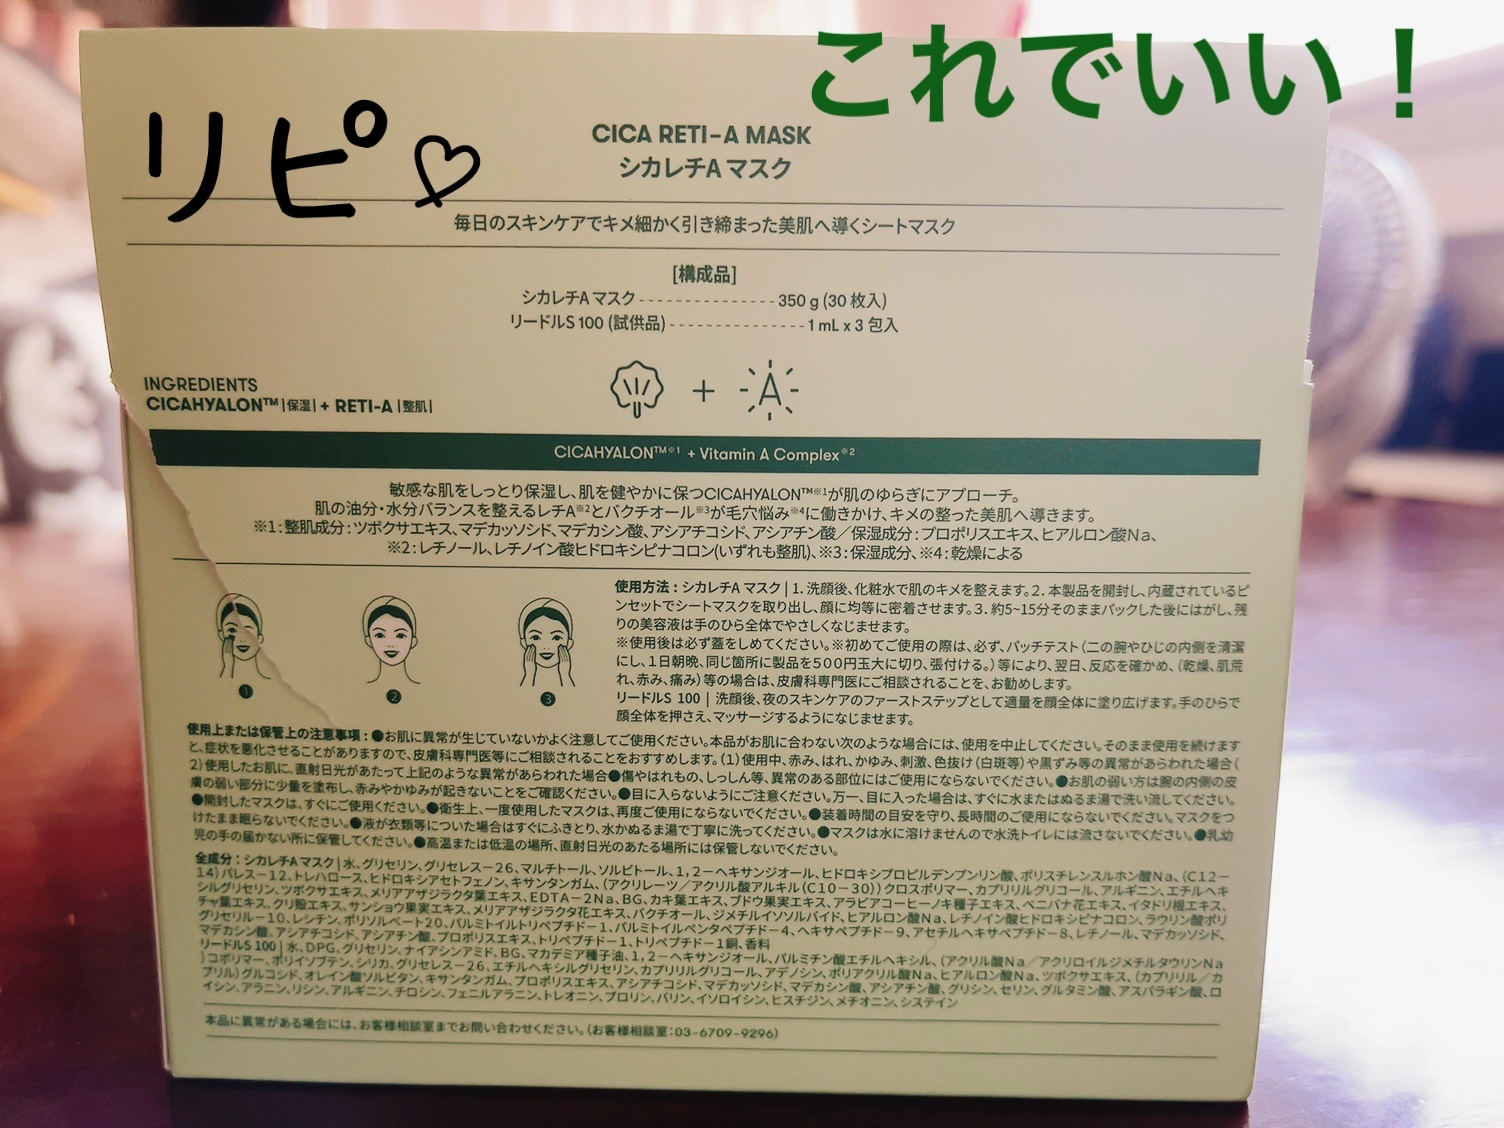 これでいい！
リピ♡
CICA RETI-A MASK
シカレチA マスク
毎日のスキンケアでキメ細かく引き締まった美肌へ導くシートマスク
[構成品]
シカレチA マスク - - - - - - - - - - - - - - - 350 g (30 枚入)
リードルS 100 (試供品) - - - - - - - - - - - - - - - 1 mL x 3 包入
INGREDIENTS
CICAHYALON™ |保湿| + RETI-A |整肌|
+
A
CICAHYALON™※1 + Vitamin A Complex※2
敏感な肌をしっとり保湿し、肌を健やかに保つCICAHYALON™※1が肌のゆらぎにアプローチ。
肌の油分・水分バランスを整えるレチA※2とバクチオール※3が毛穴悩み※4に働きかけ、キメの整った美肌へ導きます。
※1：整肌成分：ツボクサエキス、マデカッソシド、マデカシン酸、アシアチコシド、アシアチン酸／保湿成分：プロポリスエキス、ヒアルロン酸Na、
※2：レチノール、レチノイン酸ヒドロキシピナコロン(いずれも整肌)、※3：保湿成分、※4：乾燥による
使用方法：シカレチA マスク | 1. 洗顔後、化粧水で肌のキメを整えます。2. 本製品を開封し、内蔵されているピ
ンセットでシートマスクを取り出し、顔に均等に密着させます。3. 約5~15分そのままパックした後にはがし、残
りの美容液は手のひら全体でやさしくなじませます。
※使用後は必ず蓋をしめてください。※初めてご使用の際は、必ず、パッチテスト（二の腕やひじの内側を清潔
にし、1日朝晩、同じ箇所に製品を500円玉大に切り、張付ける。）等により、翌日、反応を確かめ、（乾燥、肌荒
れ、赤み、痛み）等の場合は、皮膚科専門医にご相談されることを、お勧めします。
リードルS 100 | 洗顔後、夜のスキンケアのファーストステップとして適量を顔全体に塗り広げます。手のひらで
顔全体を押さえ、マッサージするようになじませます。
1
2
3
使用上または保管上の注意事項：●お肌に異常が生じていないかよく注意してご使用ください。本品がお肌に合わない次のような場合には、使用を中止してください。そのまま使用を続けます
と、症状を悪化させることがありますので、皮膚科専門医等にご相談されることをおすすめします。（1）使用中、赤み、はれ、かゆみ、刺激、色抜け（白斑等）や黒ずみ等の異常があらわれた場合（
2）使用したお肌に、直射日光があたって上記のような異常があらわれた場合●傷やはれもの、しっしん等、異常のある部位にはご使用にならないでください。●お肌の弱い方は腕の内側の皮
膚の弱い部分に少量を塗布し、赤みやかゆみが起きないことをご確認ください。●目に入らないようにご注意ください。万一、目に入った場合は、すぐに水またはぬるま湯で洗い流してください。
●開封したマスクは、すぐにご使用ください。●衛生上、一度使用したマスクは、再度ご使用にならないでください。●装着時間の目安を守り、長時間のご使用にならないでください。マスクをつ
けたまま眠らないでください。●液が衣類等についた場合はすぐにふきとり、水かぬるま湯で丁寧に洗ってください。●マスクは水に溶けませんので水洗トイレには流さないでください。●乳幼
児の手の届かない所に保管してください。●高温または低温の場所、直射日光のあたる場所には保管しないでください。
全成分：シカレチA マスク | 水、グリセリン、グリセレス－26、マルチトール、ソルビトール、1,2－ヘキサンジオール、ヒドロキシプロピルデンプンリン酸、ポリスチレンスルホン酸Na、（C12－
14）パレス－12、トレハロース、ヒドロキシアセトフェノン、キサンタンガム、（アクリレーツ／アクリル酸アルキル（C10－30））クロスポリマー、カプリリルグリコール、アルギニン、エチルヘキ
シルグリセリン、ツボクサエキス、メリアアザジラクタ葉エキス、EDTA－2Na、BG、カキ葉エキス、ブドウ果実エキス、アラビアコーヒーノキ種子エキス、ベニバナ花エキス、イタドリ根エキス、
チャ葉エキス、クリ殻エキス、サンショウ果実エキス、メリアアザジラクタ花エキス、バクチオール、ジメチルイソソルバイド、ヒアルロン酸Na、レチノイン酸ヒドロキシピナコロン、ラウリン酸ポリ
グリセリル－10、レシチン、ポリソルベート20、パルミトイルトリペプチド－1、パルミトイルペンタペプチド－4、ヘキサペプチド－9、アセチルヘキサペプチド－8、レチノール、マデカッソシド、
マデカシン酸、アシアチコシド、アシアチン酸、プロポリスエキス、トリペプチド－1、トリペプチド－1銅、香料
リードルS 100 | 水、DPG、グリセリン、ナイアシンアミド、BG、マカデミア種子油、1,2－ヘキサンジオール、パルミチン酸エチルヘキシル、（アクリル酸Na／アクリロイルジメチルタウリンNa
）コポリマー、ポリイソブテン、シリカ、グリセレス－26、エチルヘキシルグリセリン、カプリリルグリコール、アデノシン、ポリアクリル酸Na、ヒアルロン酸Na、ツボクサエキス、（カプリリル／カ
プリル）グルコシド、オレイン酸ソルビタン、キサンタンガム、プロポリスエキス、アシアチコシド、マデカッソシド、マデカシン酸、アシアチン酸、グリシン、セリン、グルタミン酸、アスパラギン酸、ロ
イシン、アラニン、リシン、アルギニン、チロシン、フェニルアラニン、トレオニン、プロリン、バリン、イソロイシン、ヒスチジン、メチオニン、システイン
本品に異常がある場合には、お客様相談室までお問い合わせください。（お客様相談室：03-6709-9296）